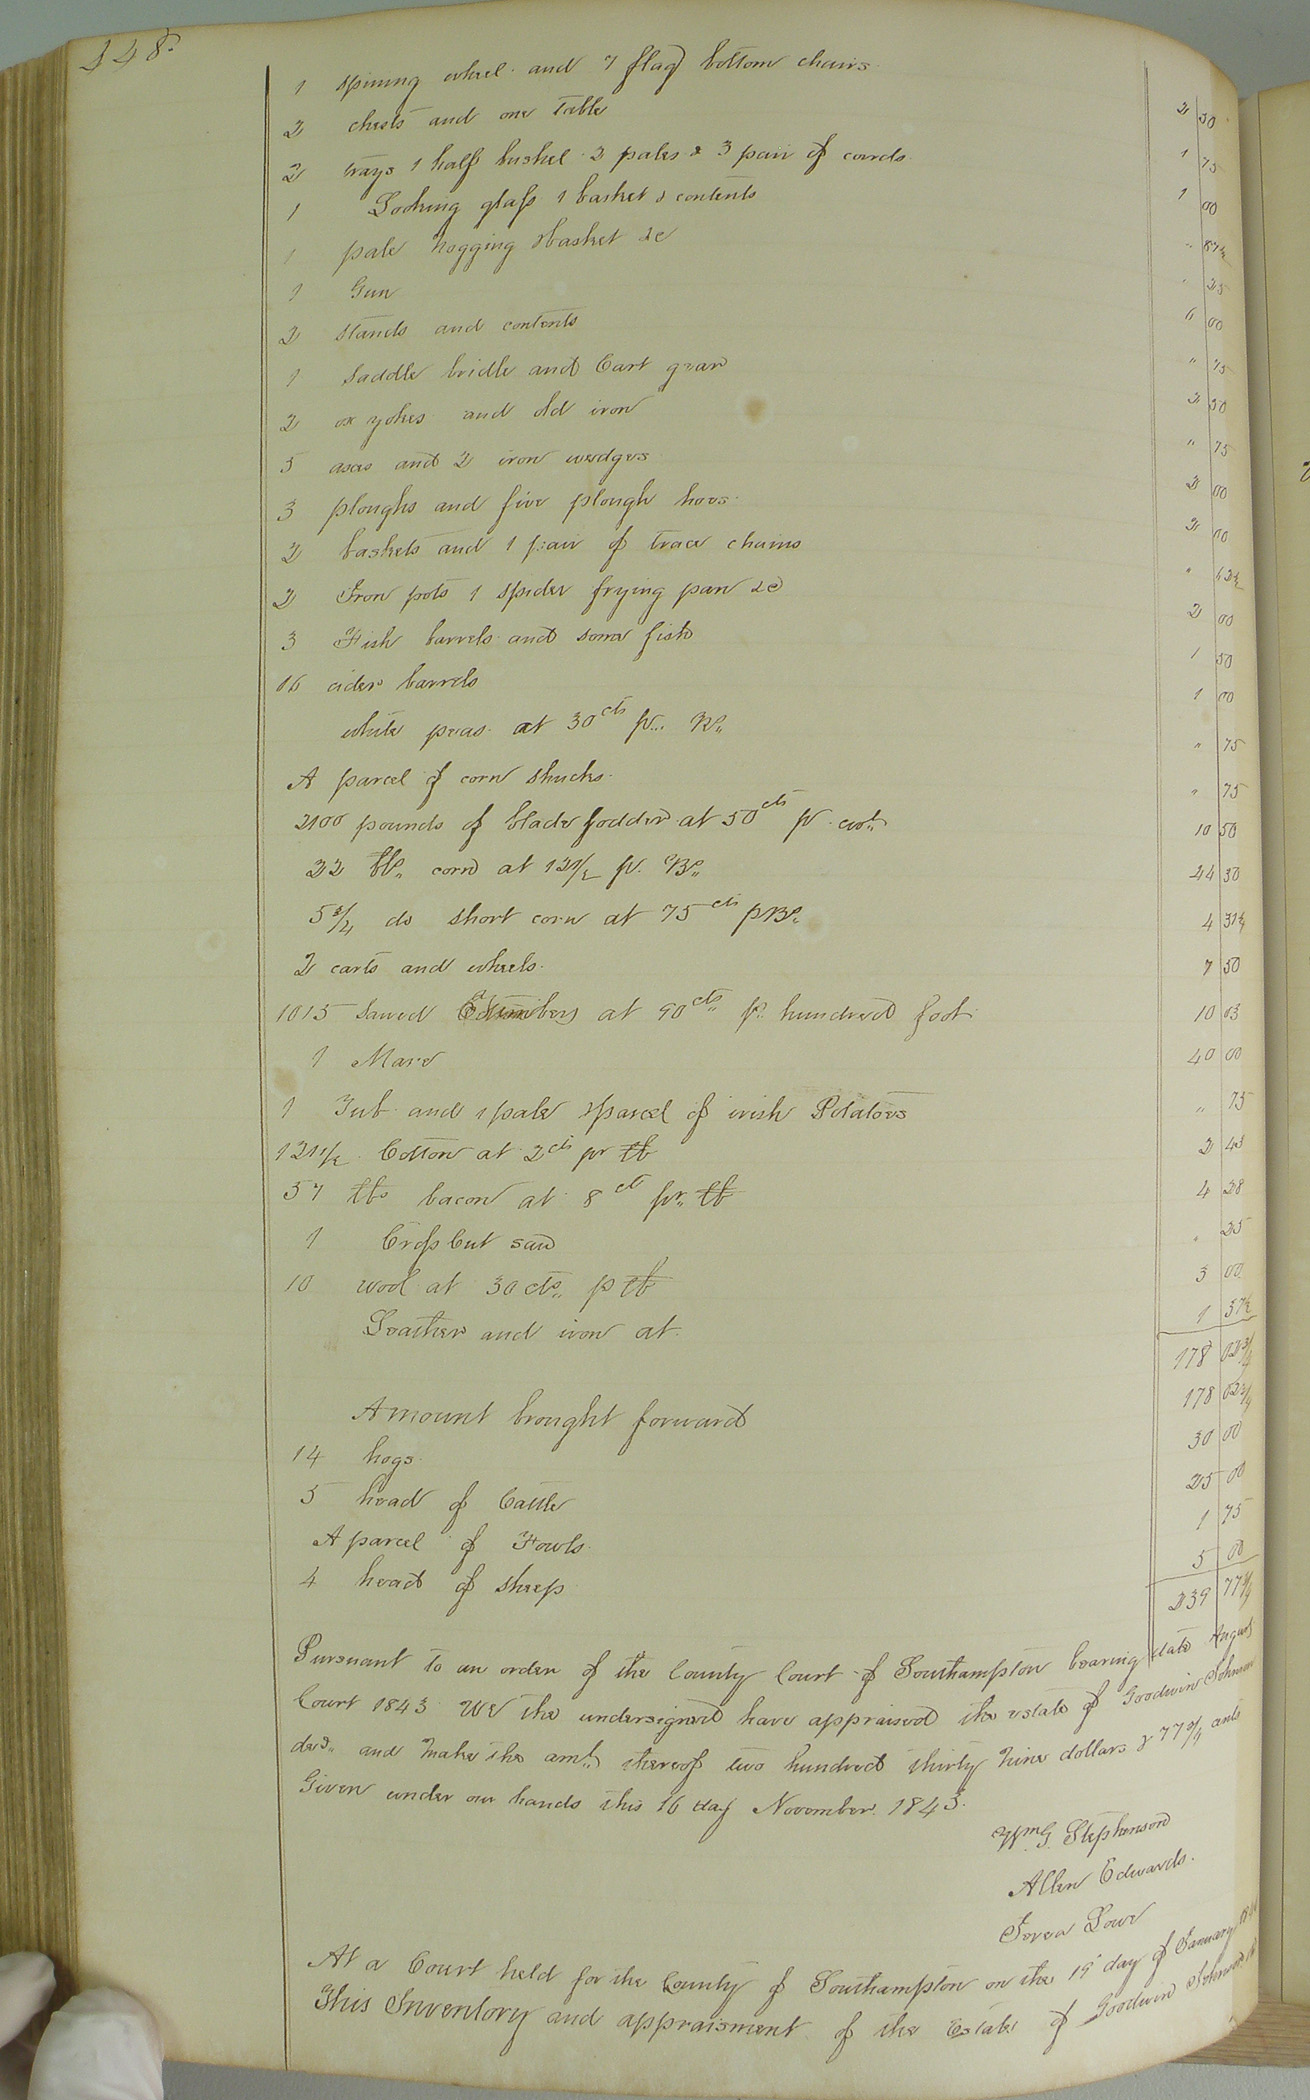 448
1 spining wheel and 7 flag bottom chairs 2 50
2 chests and one table 1 75
2 trays 1 half bushel 2 pales & 3 pair of cards 1 00
1 Looking glass 1 basket & contents " 87½
1 pale nogging Basket &c " 25
1 Gun 6 00
2 stands and contents " 75
1 Saddle bridle and Cart gear 2 50
2 ox yokes and old iron " 75
5 axes and 2 iron wedges 2 00
3 ploughs and five plough hoes 2 00
2 baskets and 1 pair of trace chains " 62½
2 Iron pots 1 spider frying pan &c 2 00
3 Fish barrels and some fish 1 50
16 cider barrels 1 00
white peas at 30 cts pr. Bo. " 75
A parcel of corn shucks " 75
2100 pounds of blade fodder at 50 cts pr cwt. 10 50
22 bbs. corn at 12 1/2 pr. Bo. 44 50
5 3/4 do short corn at 75 cts p Bo. 4 31¼
2 carts and wheels 7 50
1015 Sawed at 90 cts. pr. hundred foot 10 03
1 Mare 40 00
1 Tub and 1 pale 1 parcel of irish Potatoes " 75
121 1/2 Cotton at 2 cts pr lb 2 43
57 lbs bacon at 8 ct pr. lb 4 28
1 Cross Cut saw " 25
10 wool at 30 cts. p lb 3 00
Leather and iron at 1 37½
178 02¾
Amount brought forward 178 02¾
14 hogs 30 00
5 head of Cattle 25 00
A parcel of Fowls 1 75
4 head of sheep 5 00
239 77¾
Pursuant to an order of the County Court of Southampton bearing date August
Court 1843 We the undersigned have appraised the estate of Goodwin Johnson
decd. and make the amt. thereof two hundred thirty nine dollars & 77 3/4 cents
Given under our hands this 16 day November 1843.
Wm. G. Stephenson
Allen Edwards.
Lowe
At a Court held for the County of Southampton on the 15 day of January
This Inventory and appraisment of the Estate of Goodwin Johnson